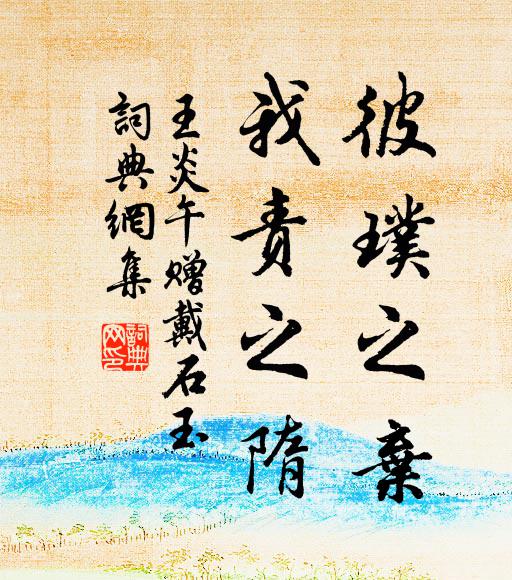 彼璞之棄
我責之隋
王炎午贈戴石玉
詞典網集
詞典网印